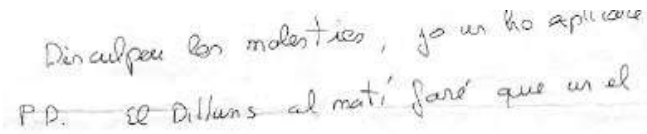 Disculpeu les molesties, jo us ho aplicare
P.D. El Dilluns al matí faré que us el